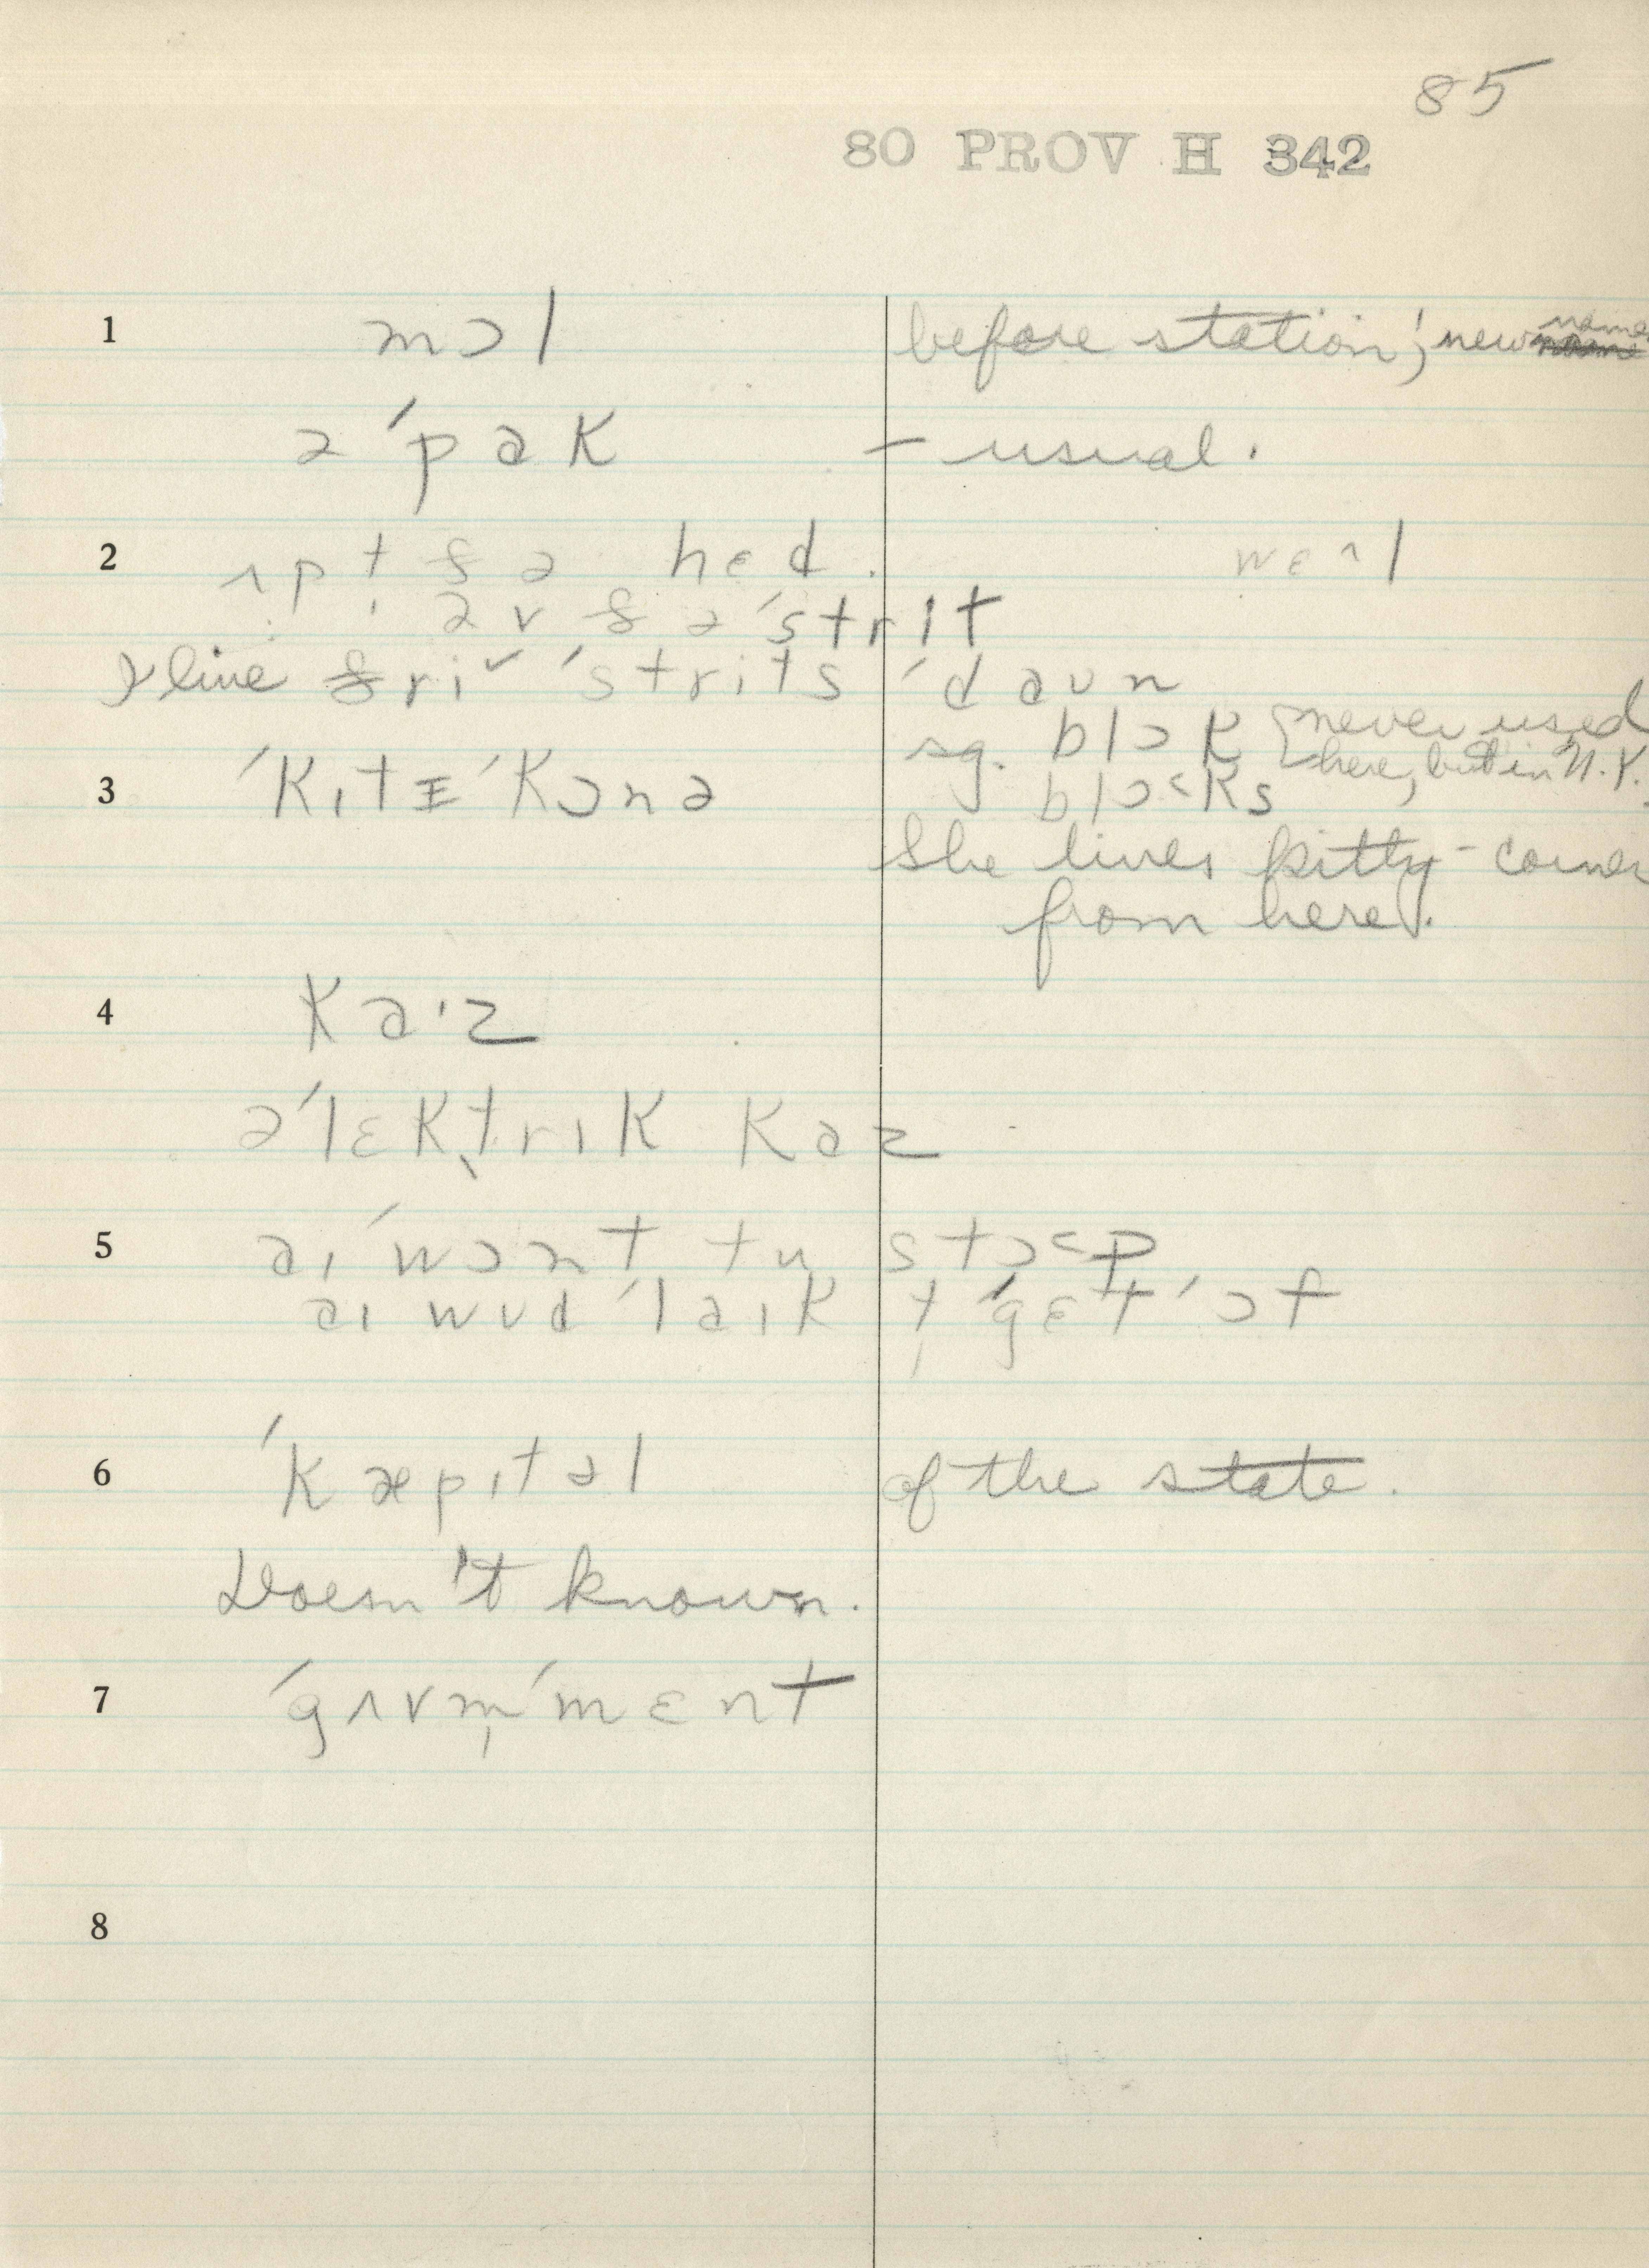 85
80 PROV H 342
1 mɔl before station; new name
ə ˈpak – usual.
2 ʌp t̩ ðə hɛd. wɛʌl
əv ðə ˈstrit
I live θri ˈstrits ˈdaʊn
sg. blɔk {never used
3 ˈkɪtɪ ˈkɔnə blɔ˂ks here, but in N.Y.
She lives kitty-corner
from here.
4 ka·z
əˈlɛktrɪk kaz
5 aɪ ˈwɔnt tu stɔ˂p
aɪ wʊd ˈlaɪk t̩ ˈgɛt ˈɔf
6 ˈkæpɪtəl of the state.
Doesn't known.
7 ˈgʌvm̩ˈmɛnt
8